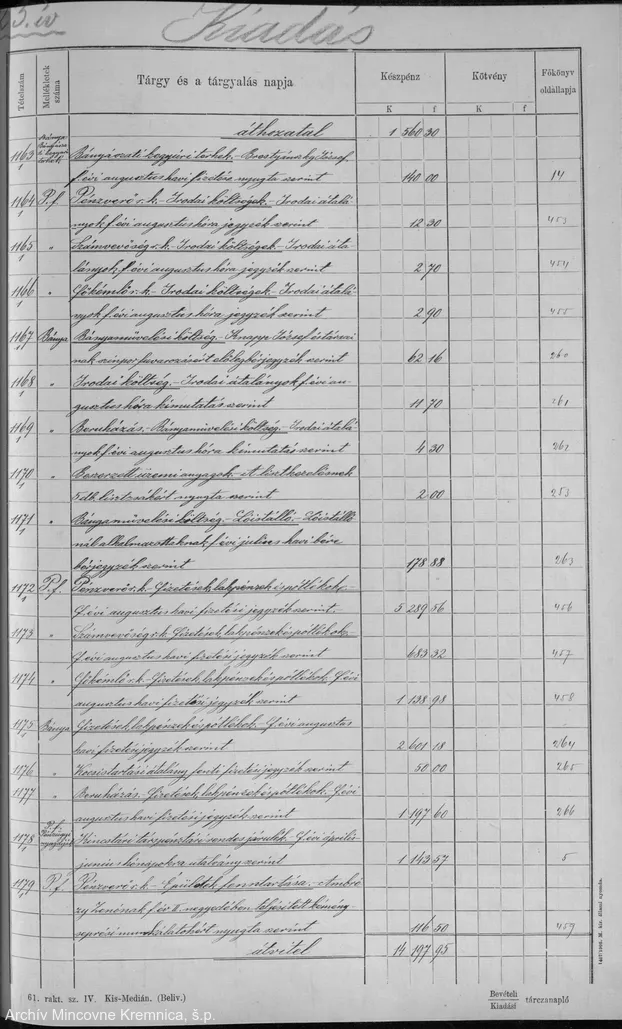 5. év
Kiadás
Tételszám
Mellékletek száma
Tárgy és a tárgyalás napja
Készpénz
Kötvény
Főkönyv oldallapja
K f K f
áthozatal 1 560 30
1163 Bányászati kegyúri terhek.- Brostyánszky József
f. évi augusztus havi fizetése nyugta szerint 140 00 14
1164 P.f. Pénzverő r.k.- Irodai költségek.- Irodai átalá-
nyok f. évi augusztus hóra jegyzék szerint 12 30 453
1165 " Számvevőség r.k.- Irodai költségek.- Irodai áta-
lányok f. évi augusztus hóra jegyzék szerint 2 70 454
1166 " Főkémlő r.k.- Irodai költségek.- Irodai átalá-
nyok f. évi augusztus hóra jegyzék szerint 2 90 455
1167 Bánya Bányaművelési költség.- Knapp József és társai-
nak szinpor fuvarozásért előlegbérjegyzék szerint 62 16 260
1168 " Irodai költség.- Irodai átalányok f. évi au-
gusztus hóra kimutatás szerint 11 70 261
1169 " Beruházás.- Bányaművelési költség.- Irodai átalá-
nyok f. évi augusztus hóra kimutatás szerint 4 30 262
1170 " Beszerzett üzemi anyagok.- A lisztkezelésnek
5 db lisztzsákért nyugta szerint 2 00 253
1171 " Bányaművelési költség.- Lóistálló.- Lóistálló-
nál alkalmazottaknak f. évi julius havi bére
bérjegyzék szerint 178 88 263
1172 P.f. Pénzverő r.k.- Fizetések, lakpénzek és pótlékok.-
f. évi augusztus havi fizetési jegyzék szerint.- 5 289 56 456
1173 " Számvevőség r.k. Fizetések, lakpénzek és pótlékok.-
f. évi augusztus havi fizetési jegyzék szerint 683 32 457
1174 " Főkémlő r.k.- Fizetések, lakpénzek és pótlékok.- f. évi
augusztus havi fizetési jegyzék szerint 1 138 98 458
1175 Bánya Fizetések, lakpénzek és pótlékok.- f. évi augusztus
havi fizetési jegyzék szerint 2 601 18 264
1176 " Kocsitartási átalány fenti fizetési jegyzék szerint 50 00 265
1177 " Beruházás.- Fizetések, lakpénzek és pótlékok.- f. évi
augusztus havi fizetési jegyzék szerint 1 197 60 266
1178 P.f. Kincstári társpénztári rendes járulék.- f. évi április-
junius hónapokra utalvány szerint 1 143 57 5
1179 P.f. Pénzverő r.k.- Épületek fenntartása.-
f. év II. negyedében teljesített kémény-
seprési munkálatokért nyugta szerint 116 50 459
átvitel 14 197 95
61. rakt. sz. IV. Kis-Medián. (Beliv.)
Bevételi
Kiadási tárczanapló
M. kir. állami nyomda.
Archív Mincovne Kremnica, š.p.